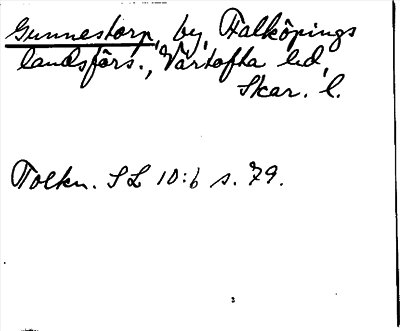 Gunnestorp, by, Falköpings
landsförs., Vartofta hd,
Skar. l.
Tolkn. SL 10:6 s. 79.